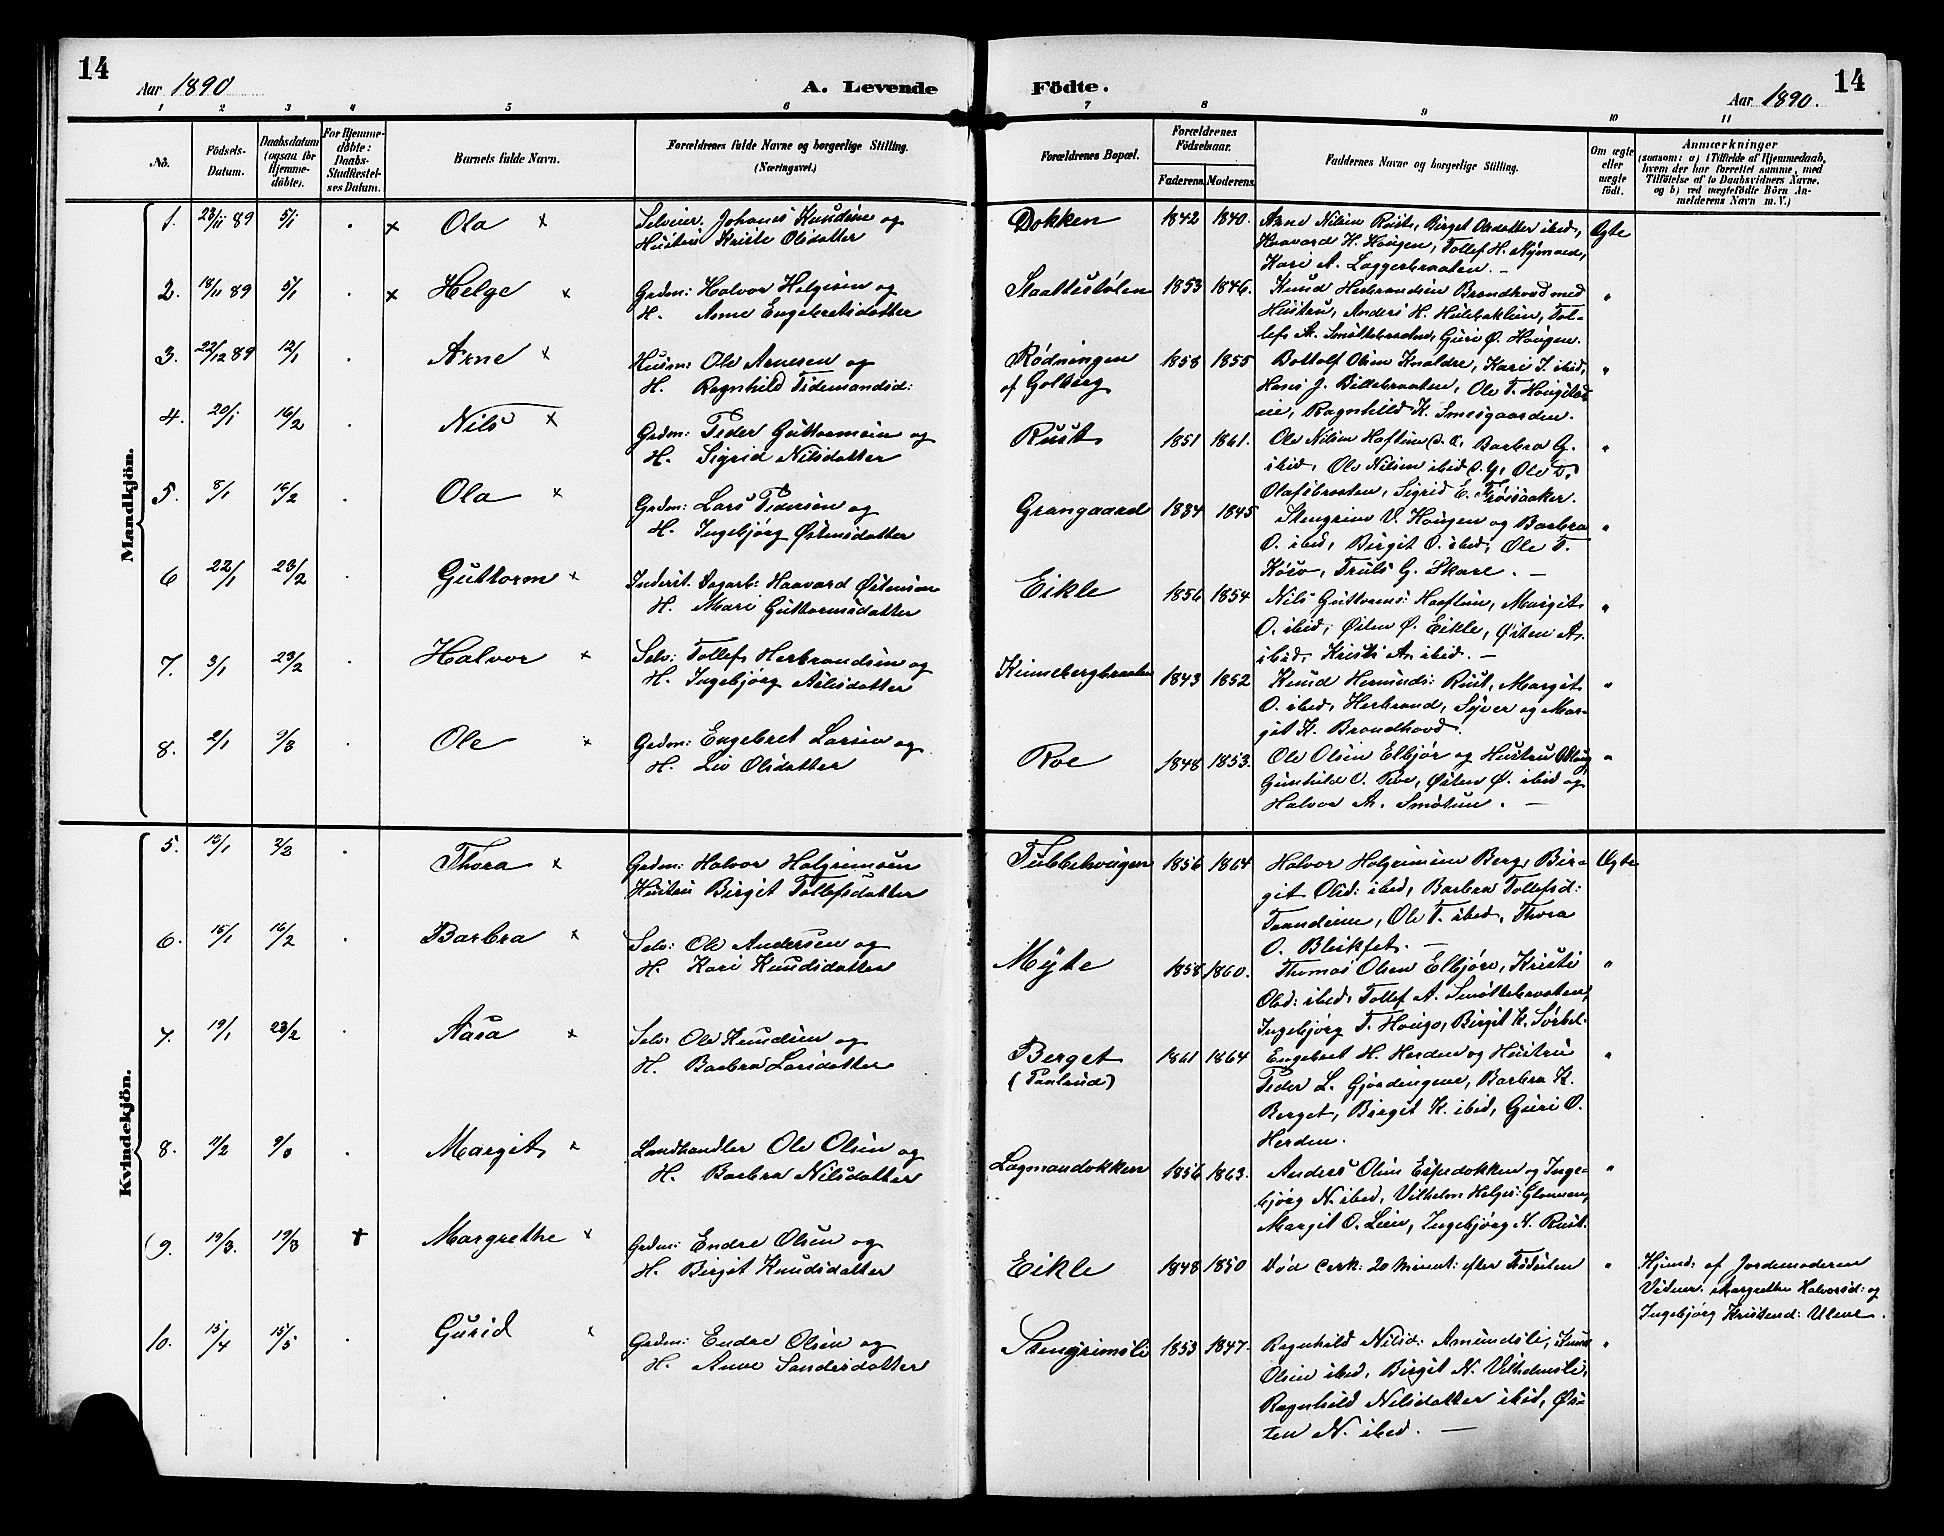 14
Aar 1890
A. Levende
Födte.
Aar 1890.
14
1 2 3 4 5 6 7 8 9 10 11
No.
Födsels-Datum.
Daabsdatum (ogsaa for Hjemmedöbte).
For Hjemmedöbte: Daabs-Stadfæstelses Datum.
Barnets fulde Navn.
Forældrenes fulde Navne og borgerlige Stilling. (Næringsvei.)
Forældrenes Bopæl.
Forældrenes Födselsaar.
Faderens. Moderens.
Faddernes Navne og borgerlige Stilling.
Om ægte eller uægte födt.
Anmærkninger
(saasom: a) i Tilfælde af Hjemmedaab, hvem der har forrettet samme, med Tilföielse af to Daabsvidners Navne, og b) ved uægtefödte Börn Anmelderens Navn m. V.)
Mandkjön.
1. 23/11 89 5/1 x Ola x
Selveier Johanes Knudsen og
Hustru Kristi Olsdatter
Dokken 1842 1840.
Arne Nilsen Rust, Birget Olsdatter ibid,
Haavard H. Hougen, Tollef H. Nýmoen,
Kari A. Laggerbraaten. —
Ægte
2. 18/11 89 5/1 x Helge x
Grdm: Halvor Helgesen og
H. Anne Engebretsdatter
Staattestølen 1853 1846.
Knud Herbrandsen Brandhovd med
Hustru, Anders H. Hulbakken, Tol-
lef A. Smøttebraaten, Guri O. Hougen.
"
3. 22/12 89 12/1 Arne x
Husm: Ole Arnesen og
H. Ragnhild Tidemandsd:
Rødningen
af Golberg
1858 1855
Bottolf Olsen Knaldre, Kari T. ibid,
Hans J. Billebraaten, Ole T. Hougstad
eie, Ragnhild K. Smesgaarden.
"
4. 20/1 16/2 Nils x
Grdm: Peder Guttormsen og
H. Sigrid Nilsdatter
Rust 1851 1861.
Ole Nilsen Haftun, Barbra G.
ibid, Ole Nilsen ibid, Ole T.
Olafsbraaten, Sigrid E. Trøisaaker.
"
5. 8/1 16/2 Ola x
Grdm: Lars Pedersen og
H. Ingebjörg Østensdatter
Grangaard 1834 1845
Stengrim V. Hougen og Barbra
O. ibid, Birgit O. ibid, Ole T.
Køso, Truls G. Skare. —
"
6 22/1 23/2 Guttorm x
Inderst. Dagarb: Haavard Østensen
H. Mari Guttormsdatter
Eikle 1856 1854
Nils Guttorms: Haftun, Margit
O. ibid, Østen O. Eikle, Østen A.
ibid, Kristi A. ibid. —
"
7. 3/1 23/2 Halvor x
Selv: Tollef Herbrandsen og
H. Ingebjörg Asledatter
Kinnebergbraaten 1843 1852
Knud Hermunds: Rust, Margit
O. ibid, Herbrand, Syver og Mar-
git K. Brandhovd.
"
8. 2/1 9/3 Ole x
Grdm: Engebret Larsen og
H. Liv Olsdatter
Roe 1848 1853.
Ole Olsen Elbjør og Hustru
Gunhild O. Roe, Østen O. ibid og
Halvor A. Smøtun. —
"
Kvindekjön.
5. 13/1 2/2 Thora x
Grdm: Halvor Halgrimsen
Hustru Birgit Tollefsdatter
Tubbehougen 1856 1864
Halvor Halgrimsen Berg, Bir-
git Olsd: ibid, Barbra Tollefsd:
Trandeim, Ole T. ibid, Thora
O. Blikfet. —
Ægte
6. 15/1 16/2 Barbra x
Selv: Ole Andersen og
H. Kari Knudsdatter
Mÿte 1858 1860.
Thomas Olsen Elbjør, Kristi
Olsd: ibid, Tollef A. Smøttebraaten,
Ingebjörg T. Hougo, Birgit K. Sørbøl.
"
7. 19/1 23/2 Aasa x
Selv: Ole Knudsen og
H. Barbra Larsdatter
Berget
(Paalrud)
1861 1864
Engebret H. Herden og Hustru
Peder L. Gjördingene, Barbra K.
Berget, Birgit K. ibid, Guri O.
Herden.
"
8. 11/2 9/3 Margit x
Landhandler Ole Olsen og
H. Barbra Nilsdatter
Lagmandokken 1856 1863.
Anders Olsen Espedokken og Inge-
bjørg N. ibid, Vilhelm Helges:
Margit O. Lien, Ingebjörg H. Rust.
"
(9. 19/3. 19/3 † Margrethe x
Grdm: Endre Olsen og
H. Birgit Knudsdatter
Eikle 1848 1850
Død cirk: 20 minut: efter Fødselen
"
Hjemd: af Jordemoderen
Vidner: Margrethe Halvorsd: og
Ingebjörg Kristensd: Ulene.
10. 15/4 15/5 Gurid x
Grdm: Endre Olsen og
H. Anne Sandersdatter
Stengrimsli 1853 1847.
Ragnhild Nilsd: Amundsli, Knud
Olsen ibid, Birgit N. Vilhelmsli,
Ragnhild Nilsdatter ibid, Øs-
ten N. ibid. —
"